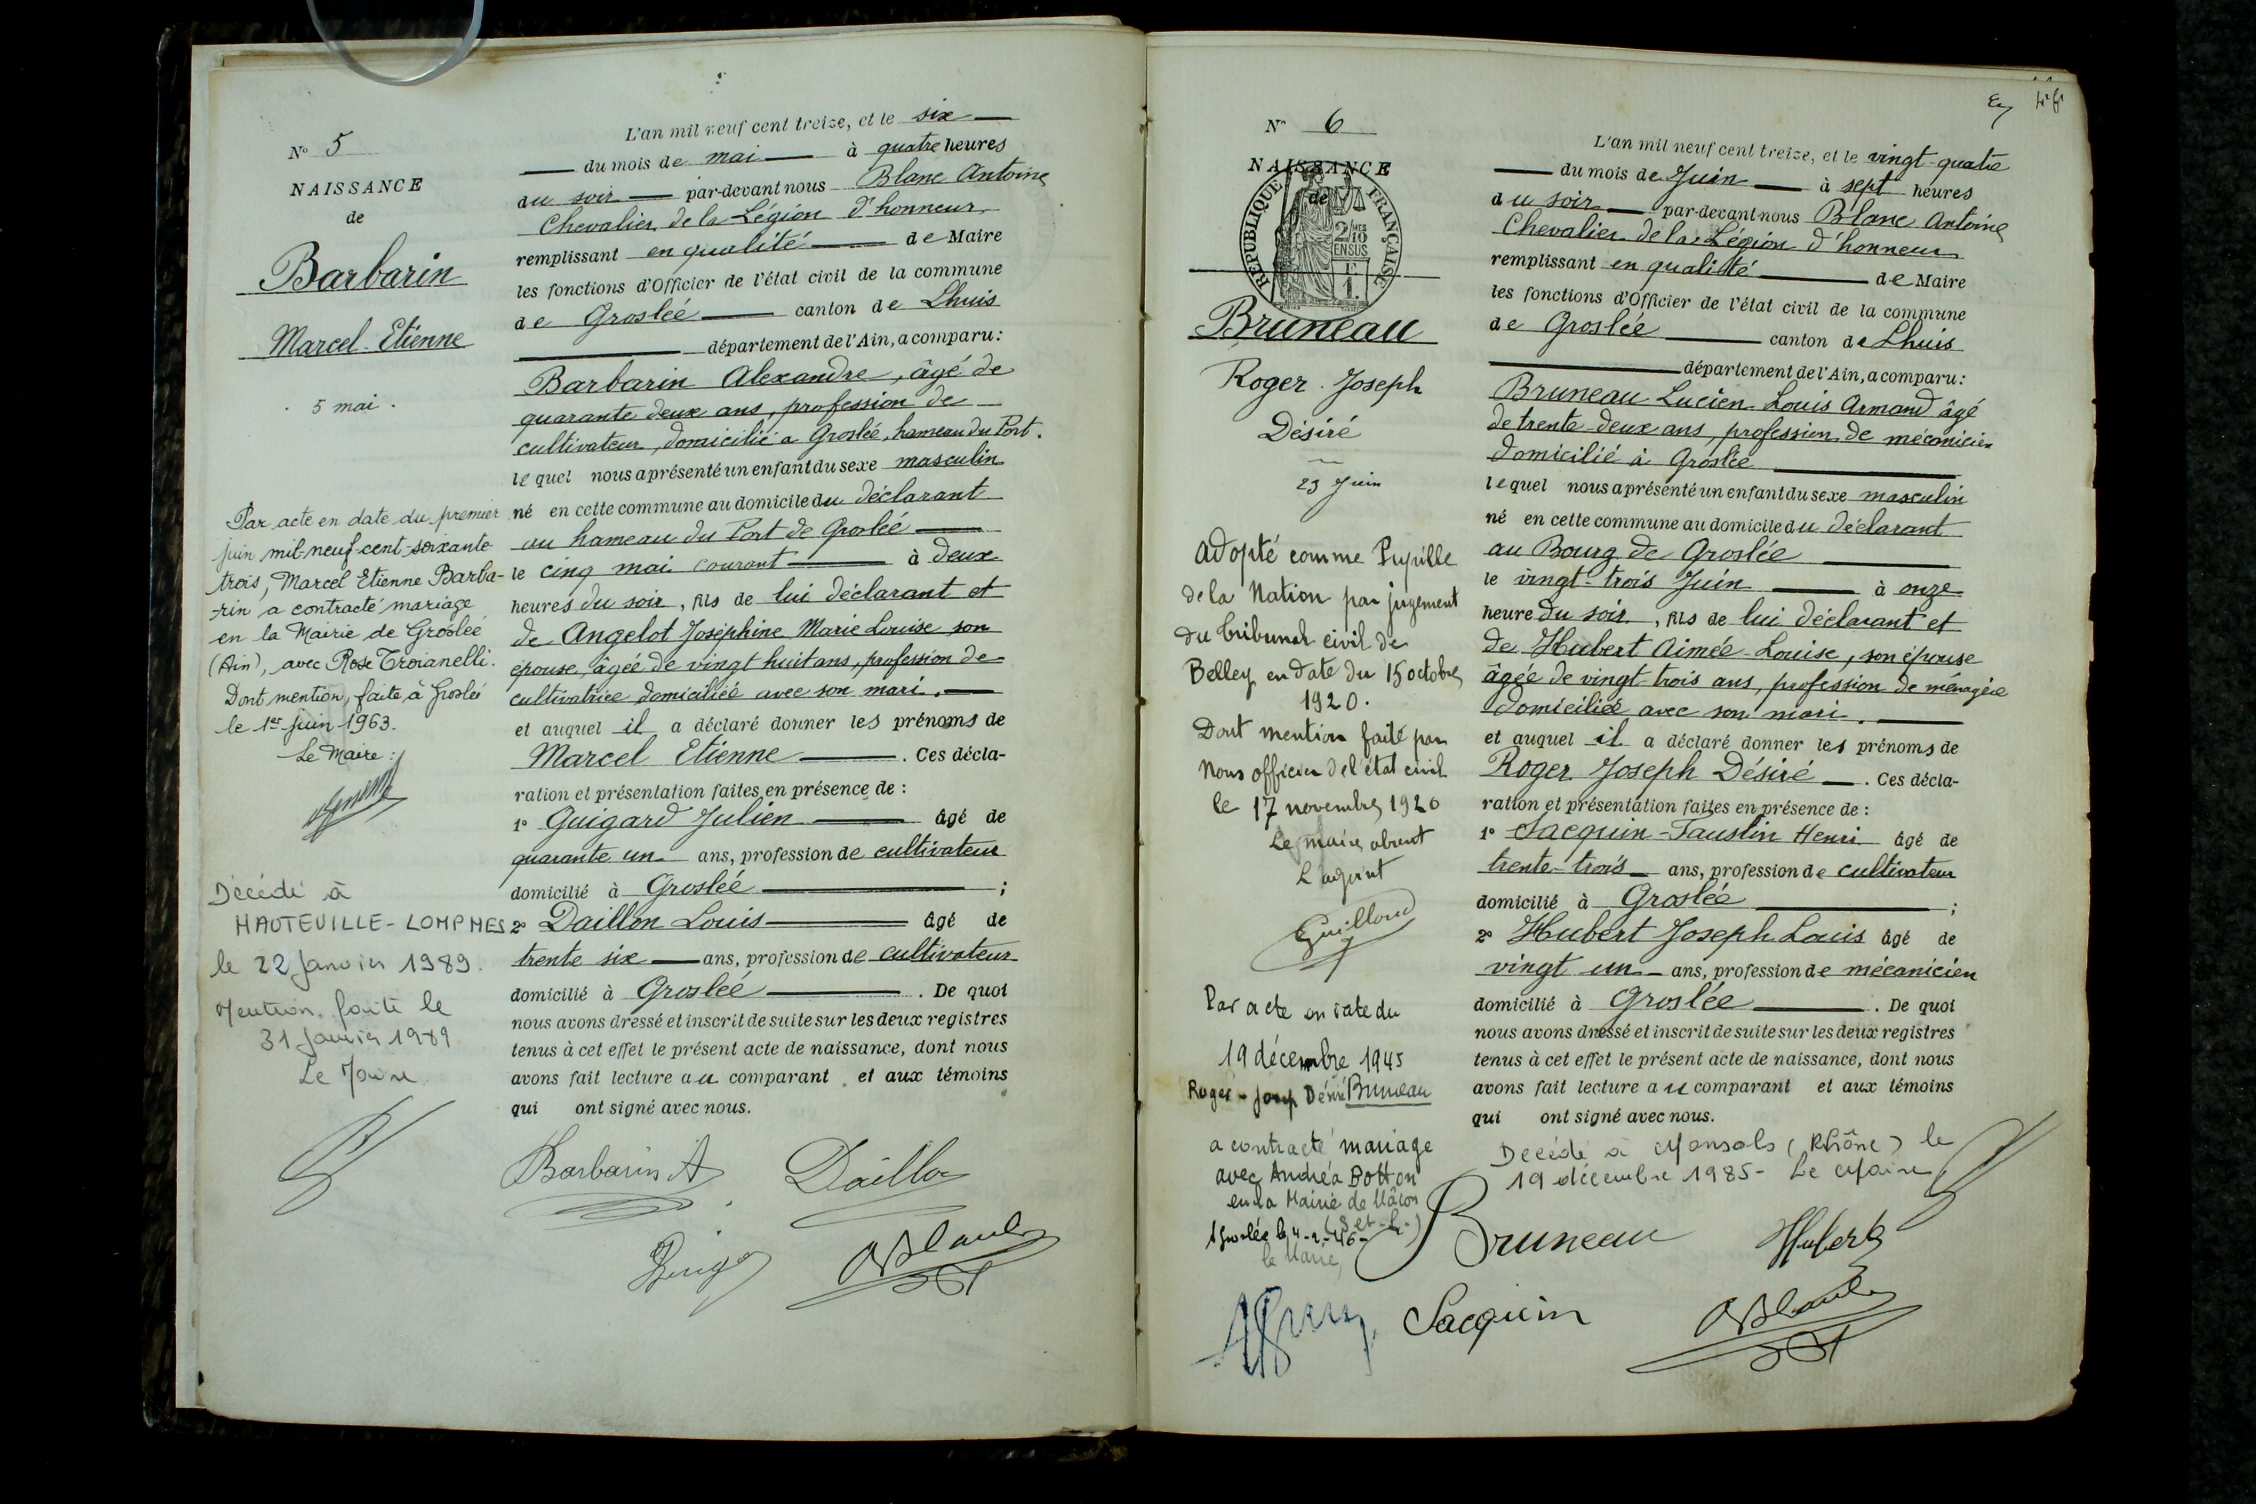 N° 5
NAISSANCE
de
Barbarin
Marcel-Etienne
5 mai
Par acte en date du premier
juin mil-neuf-cent-soixante
trois, Marcel Etienne Barba-
-rin a contracté mariage
en la Mairie de Groslée
(Ain), avec Rose Troianelli.
Dont mention, faite à Groslée
le 1er juin 1963.
Le Maire:
Décédé à
HAUTEVILLE-LOMPNES
le 22 Janvier 1989.
Mention faite le
31 Janvier 1989
Le Maire
L'an mil neuf cent treize, et le six
du mois de mai à quatre heures
du soir par-devant nous Blanc Antoine
Chevalier de la Légion d'honneur
remplissant en qualité de Maire
les fonctions d'Officier de l'état civil de la commune
de Groslée canton de Lhuis
département de l'Ain, a comparu:
Barbarin Alexandre, âgé de
quarante deux ans, profession de
cultivateur, domicilié a Groslée, hameau du Port.
lequel nous a présenté un enfant du sexe masculin
né en cette commune au domicile du déclarant
au hameau du Port de Groslée
le cinq mai courant à deux
heures du soir, fils de lui déclarant et
de Angelot Joséphine Marie Louise son
épouse, âgée de vingt huit ans, profession de
cultivatrice domiciliée avec son mari.
et auquel il a déclaré donner les prénoms de
Marcel Etienne. Ces décla-
ration et présentation faites en présence de :
1° Guigard Julien âgé de
quarante un ans, profession de cultivateur
domicilié à Groslée ;
2° Daillon Louis âgé de
trente six ans, profession de cultivateur
domicilié à Groslée. De quoi
nous avons dressé et inscrit de suite sur les deux registres
tenus à cet effet le présent acte de naissance, dont nous
avons fait lecture au comparant et aux témoins
qui ont signé avec nous.
Barbarin A Daillon
ABlanc
N° 6
NAISSANCE
de
RÉPUBLIQUE FRANÇAISE
2/10
EN SUS
F
1.
Bruneau
Roger Joseph
Désiré
23 Juin
Adopté comme Pupille
de la Nation par jugement
du tribunal civil de
Belley en date du 15 octobre
1920.
Dont mention faite par
Nous officier de l'état civil
le 17 novembre 1920
Le maire absent
L'adjoint
Guilloud
Par acte en date du
19 décembre 1945
Roger-Josep Désiré Bruneau
a contracté mariage
avec Andréa Botton
en la Mairie de Mâcon
(S et L)
A Groslée le 4-1-46-
le Maire,
L'an mil neuf cent treize, et le vingt-quatre
du mois de Juin à sept heures
du soir par-devant nous Blanc Antoine
Chevalier de la Légion d'honneur
remplissant en qualité de Maire
les fonctions d'Officier de l'état civil de la commune
de Groslée canton de Lhuis
département de l'Ain, a comparu:
Bruneau Lucien Louis Armand âgé
de trente-deux ans, profession de mécanicien
domicilié à Groslée
lequel nous a présenté un enfant du sexe masculin
né en cette commune au domicile du déclarant
au Bourg de Groslée
le vingt-trois Juin à onze
heure du soir, fils de lui déclarant et
de Hubert Aimée-Louise, son épouse
âgée de vingt-trois ans, profession de ménagère
domiciliée avec son mari.
et auquel il a déclaré donner les prénoms de
Roger Joseph Désiré. Ces décla-
ration et présentation faites en présence de :
1° Sacquin-Faustin Henri âgé de
trente-trois ans, profession de cultivateur
domicilié à Groslée ;
2° Hubert Joseph Louis âgé de
vingt un ans, profession de mécanicien
domicilié à Groslée. De quoi
nous avons dressé et inscrit de suite sur les deux registres
tenus à cet effet le présent acte de naissance, dont nous
avons fait lecture au comparant et aux témoins
qui ont signé avec nous.
Décédé à Monsols (Rhône) le
19 décembre 1985- Le Maire
Bruneau Hubert
Sacquin ABlanc